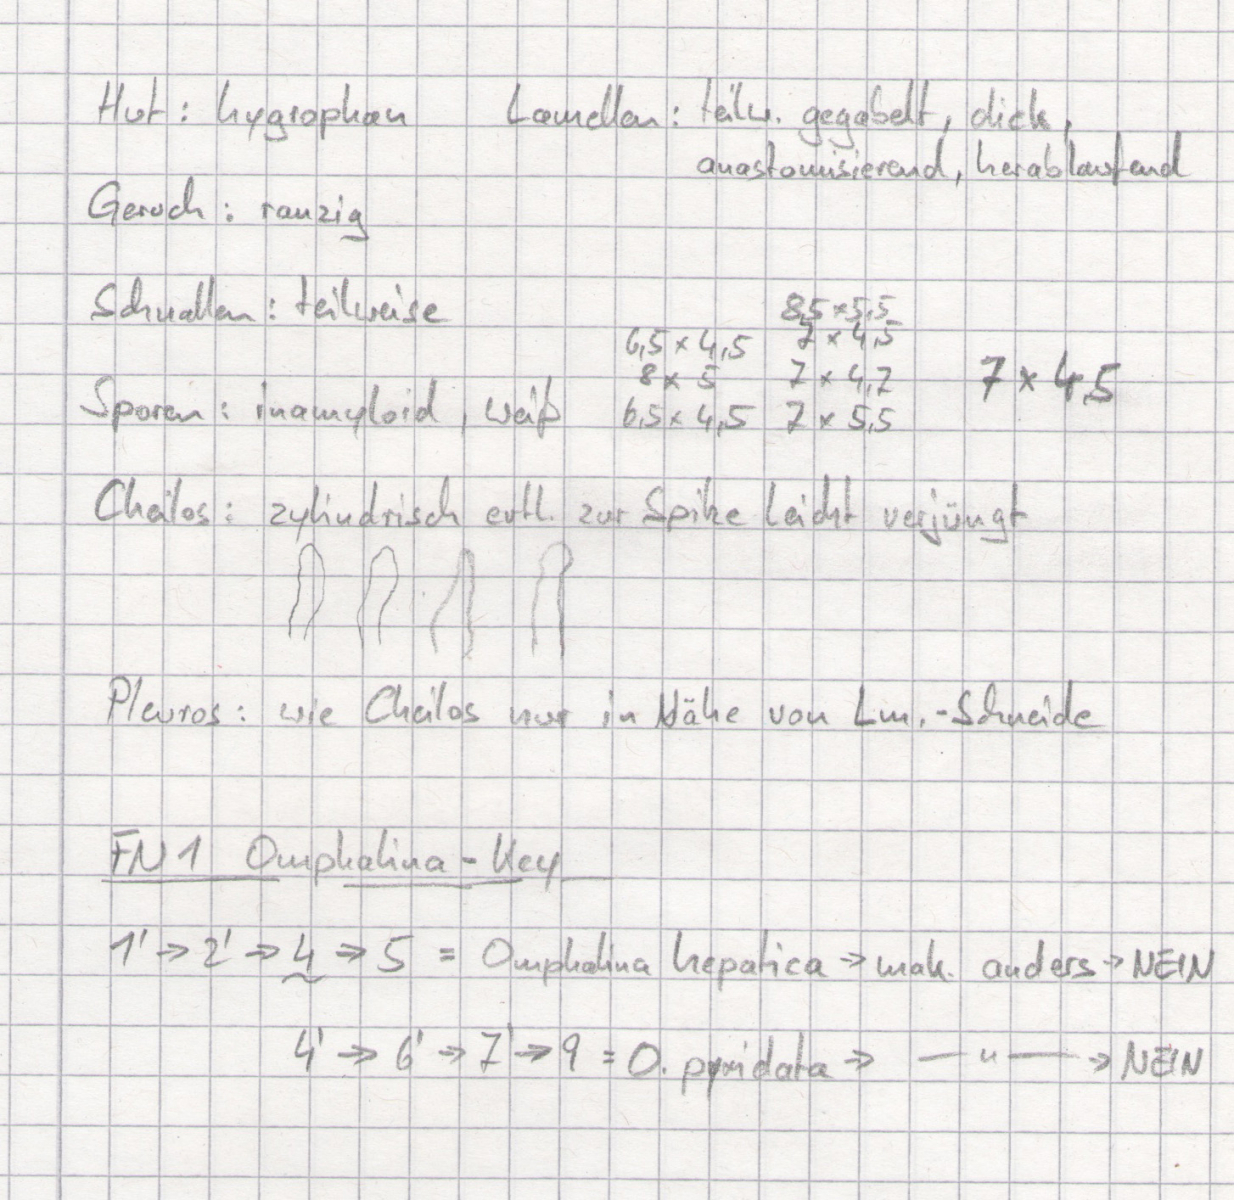 Hut: hygrophan Lamellen: teilw. gegabelt, dick,
anastomisierend, herablaufend
Geruch: ranzig
Schnallen: teilweise
8,5 × 5,5
6,5 × 4,5 7 × 4,5
8 × 5 7 × 4,7 7 × 4,5
Sporen: inamyloid, weiß 6,5 × 4,5 7 × 5,5
Cheilos: zylindrisch evtl. zur Spitze leicht verjüngt
Pleuros: wie Cheilos nur in Nähe von Lm.-Schneide
FN1 Omphalina-Key
1' → 2' → 4 → 5 = Omphalina hepatica → mak. anders → NEIN
4' → 6' → 7' → 9 = O. pyxidata → — " — → NEIN